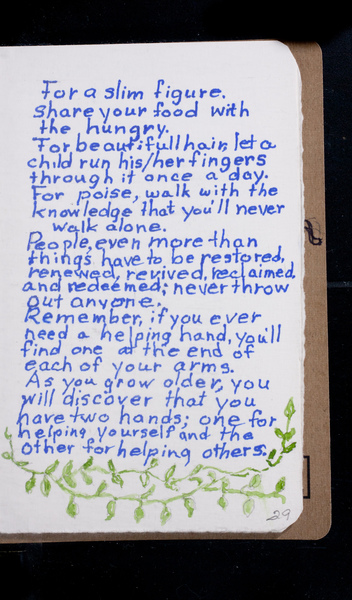 For a slim figure.
Share your food with
the hungry.
For beautifull hair, let a
child run his/her fingers
through it once a day.
For poise, walk with the
knowledge that you'll never
walk alone.
People, even more than
things have to be restored,
renewed, revived, reclaimed,
and redeemed; never throw
out anyone.
Remember, if you ever
need a helping hand, you'll
find one at the end of
each of your arms.
As you grow older, you
will discover that you
have two hands; one for
helping yourself and the
other for helping others.
29